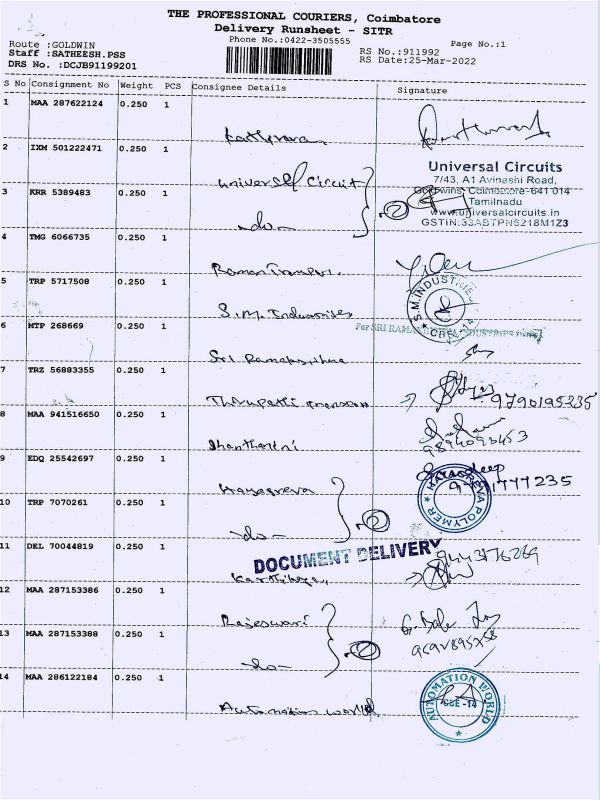 THE PROFESSIONAL COURIERS, Coimbatore
Delivery Runsheet - SITR
Phone No.:0422-3505555
Route :GOLDWIN
Page No.:1
Staff :SATHEESH.PSS
RS No.:911992
DRS No. :DCJB91199201
RS Date:25-Mar-2022
S No Consignment No Weight PCS Consignee Details Signature
1 MAA 287622124 0.250 1
2 IXM 501222471 0.250 1
Universal Circuit
Universal Circuits
7/43, A1 Avinashi Road,
Goldwins, Coimbatore-641 014
Tamilnadu
www.universalcircuits.in
GSTIN:33ABTPN6218M1Z3
3 KRR 5389483 0.250 1
-do- 2
4 TMG 6066735 0.250 1
5 TRP 5717508 0.250 1
S.M. Industries
S.M.INDUSTRIES
CBE-14
6 MTP 268669 0.250 1
Sri Ramakrishna
7 TRZ 56883355 0.250 1
Thirupathi
9790195235
8 MAA 941516650 0.250 1
Shantharini
9894093453
9 EDQ 25542697 0.250 1
Hayagreva
HAYAGREVA POLYMER
10 TRP 7070261 0.250 1
-do- 2
DOCUMENT DELIVERY
11 DEL 70044819 0.250 1
9443176269
12 MAA 287153386 0.250 1
Rajeswari
13 MAA 287153388 0.250 1
-do- 2
14 MAA 286122184 0.250 1
Automation world
AUTOMATION WORLD
CBE-14